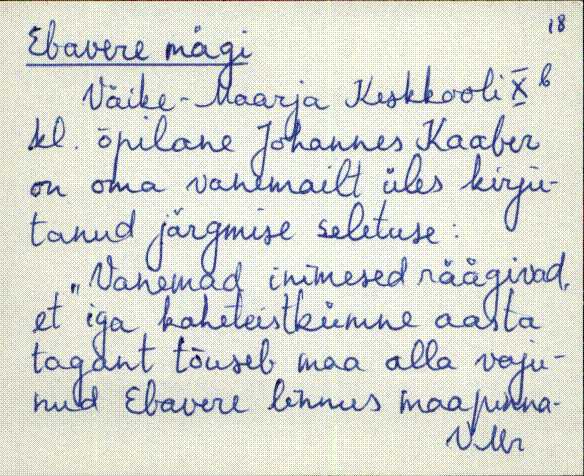 18
Ebavere mägi
Väike-Maarja Keskkooli X b
kl. õpilane Johannes Kaaber
on oma vanemailt üles kirju-
tanud järgmise seletuse:
"Vanemad inimesed räägivad,
et iga kaheteistkümne aasta
tagant tõuseb maa alla vaju-
nud Ebavere linnus maapinna-